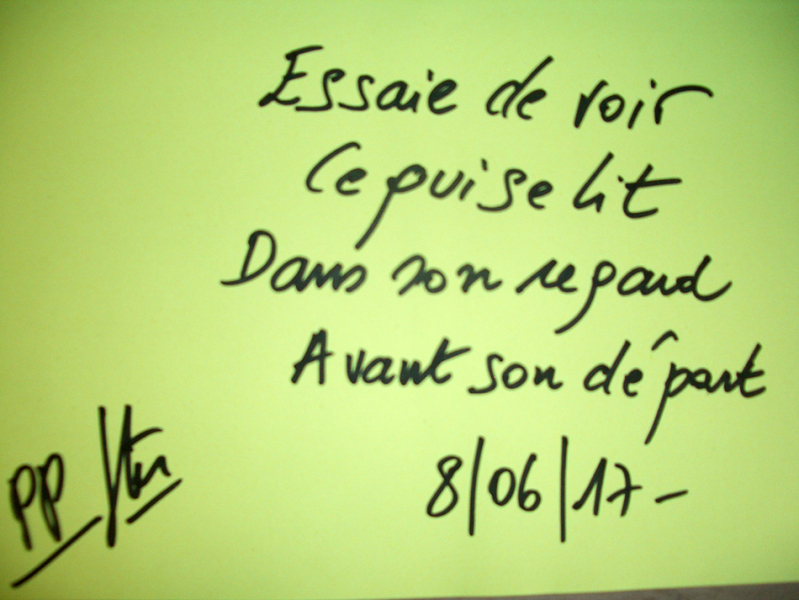 Essaie de voir
Ce qui se lit
Dans son regard
Avant son départ
8/06/17-
PP